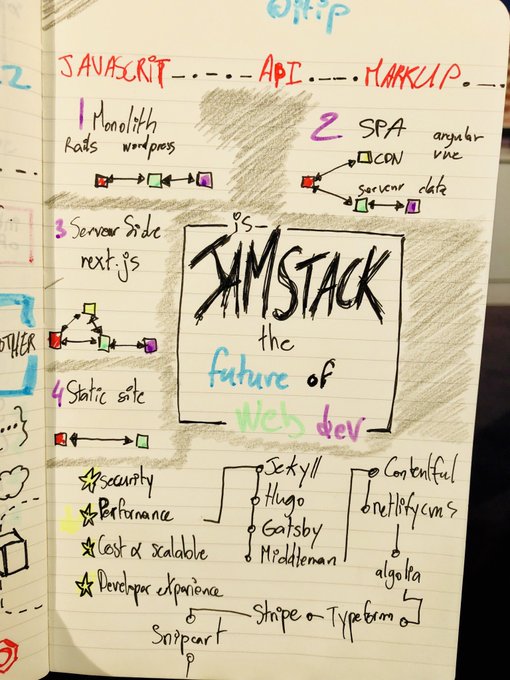 JAVASCRIT API MARKUP
1 Monolith
Rails wordpress
2 SPA
angular
vue
CDN
server data
3 Serveur Side
next.js
js
JAMSTACK
the
future of
web dev
4 Static site
security
Performance
Cost & scalable
Developer experience
Jekyll
Hugo
Gatsby
Middleman
Contentful
netlifycms
algolia
Typeform
Stripe
Snipcart
OTHER